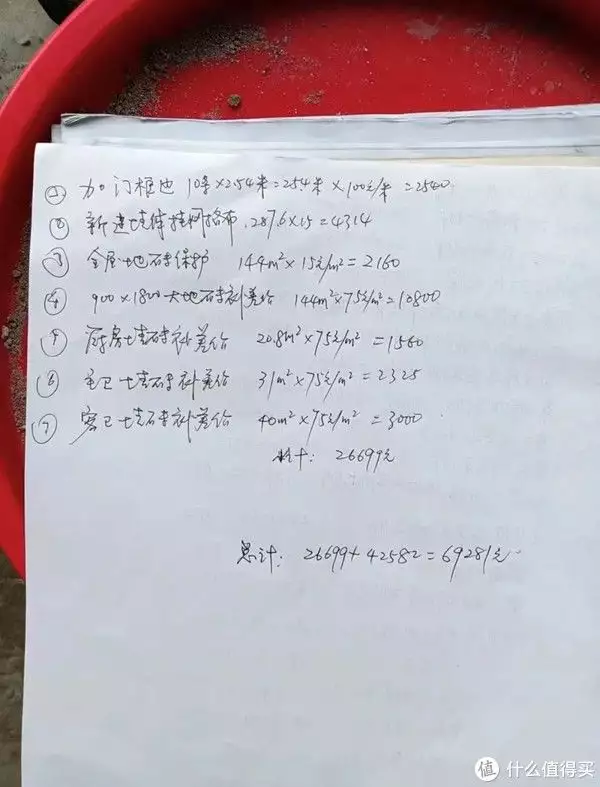 ① 加门槛 10条×2.54米=25.4米×100元/米=2540
② 新建墙体挂网格布.287.6×15=4314
③ 全屋地砖保护 144m²×15元/m²=2160
④ 900×1800大地砖补差价 144m²×75元/m²=10800
⑤ 厨房墙砖补差价 20.8m²×75元/m²=1560
⑥ 主卫墙砖补差价 31m²×75元/m²=2325
⑦ 客卫墙砖补差价 40m²×75元/m²=3000
26699元
总计: 26699+42582=69281元
值 什么值得买